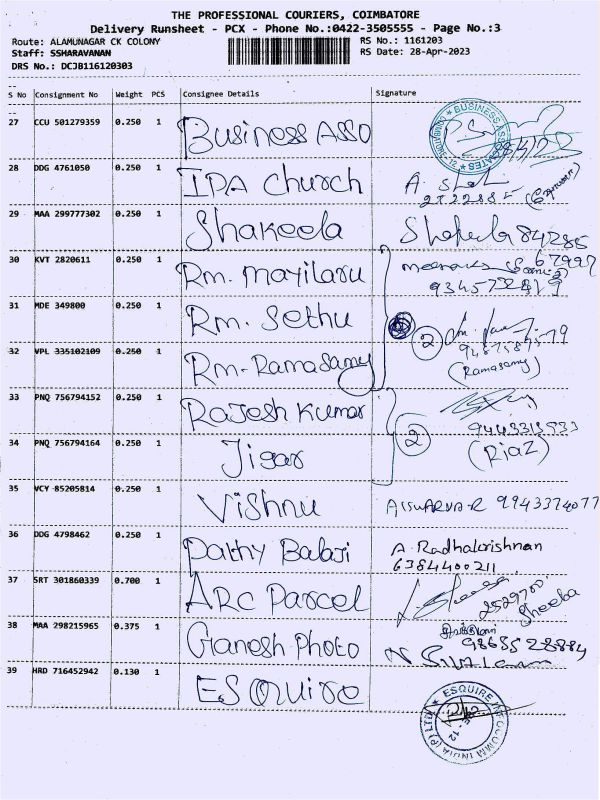 THE PROFESSIONAL COURIERS, COIMBATORE
Delivery Runsheet - PCX - Phone No.:0422-3505555 - Page No.:3
Route: ALAMUNAGAR CK COLONY RS No.: 1161203
Staff: SSHARAVANAN RS Date: 28-Apr-2023
DRS No.: DCJB116120303
S No Consignment No Weight PCS Consignee Details Signature
27 CCU 501279359 0.250 1 Business Asso BUSINESS ASSOCIATES COIMBATORE-12
28 DDG 4761050 0.250 1 IPA Church A.
29 MAA 299777302 0.250 1 Shakeela Shakeela 84285
67997
30 KVT 2820611 0.250 1 Rm. Mayilaru
31 MDE 349800 0.250 1 Rm. Sethu
32 VPL 335102109 0.250 1 Rm-Ramasamy 2
(Ramasamy)
33 PNQ 756794152 0.250 1 Rajesh Kumar
34 PNQ 756794164 0.250 1 Jigar 2 (Riaz)
35 VCY 85205814 0.250 1 Vishnu AISWARYA-R 9943374077
36 DDG 4798462 0.250 1 Pathy Balaji A. Radhakrishnan
6384400211
37 SRT 301860339 0.700 1 ARC Parcel 2529700
Sheeba
38 MAA 298215965 0.375 1 Ganesh Photo 9865528884
39 HRD 716452942 0.130 1 ESQuire ESQUIRE INFOCOMM INDIA (P) LTD